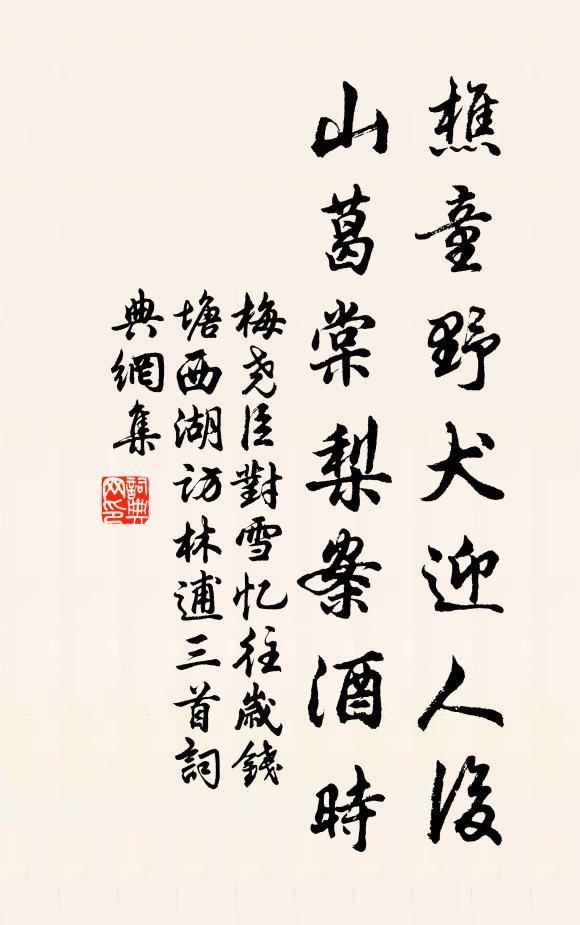 樵童野犬迎人後
山葛棠梨案酒時
梅尧臣對雪忆往歲錢
塘西湖访林逋三首詞
典網集
詞典
网印